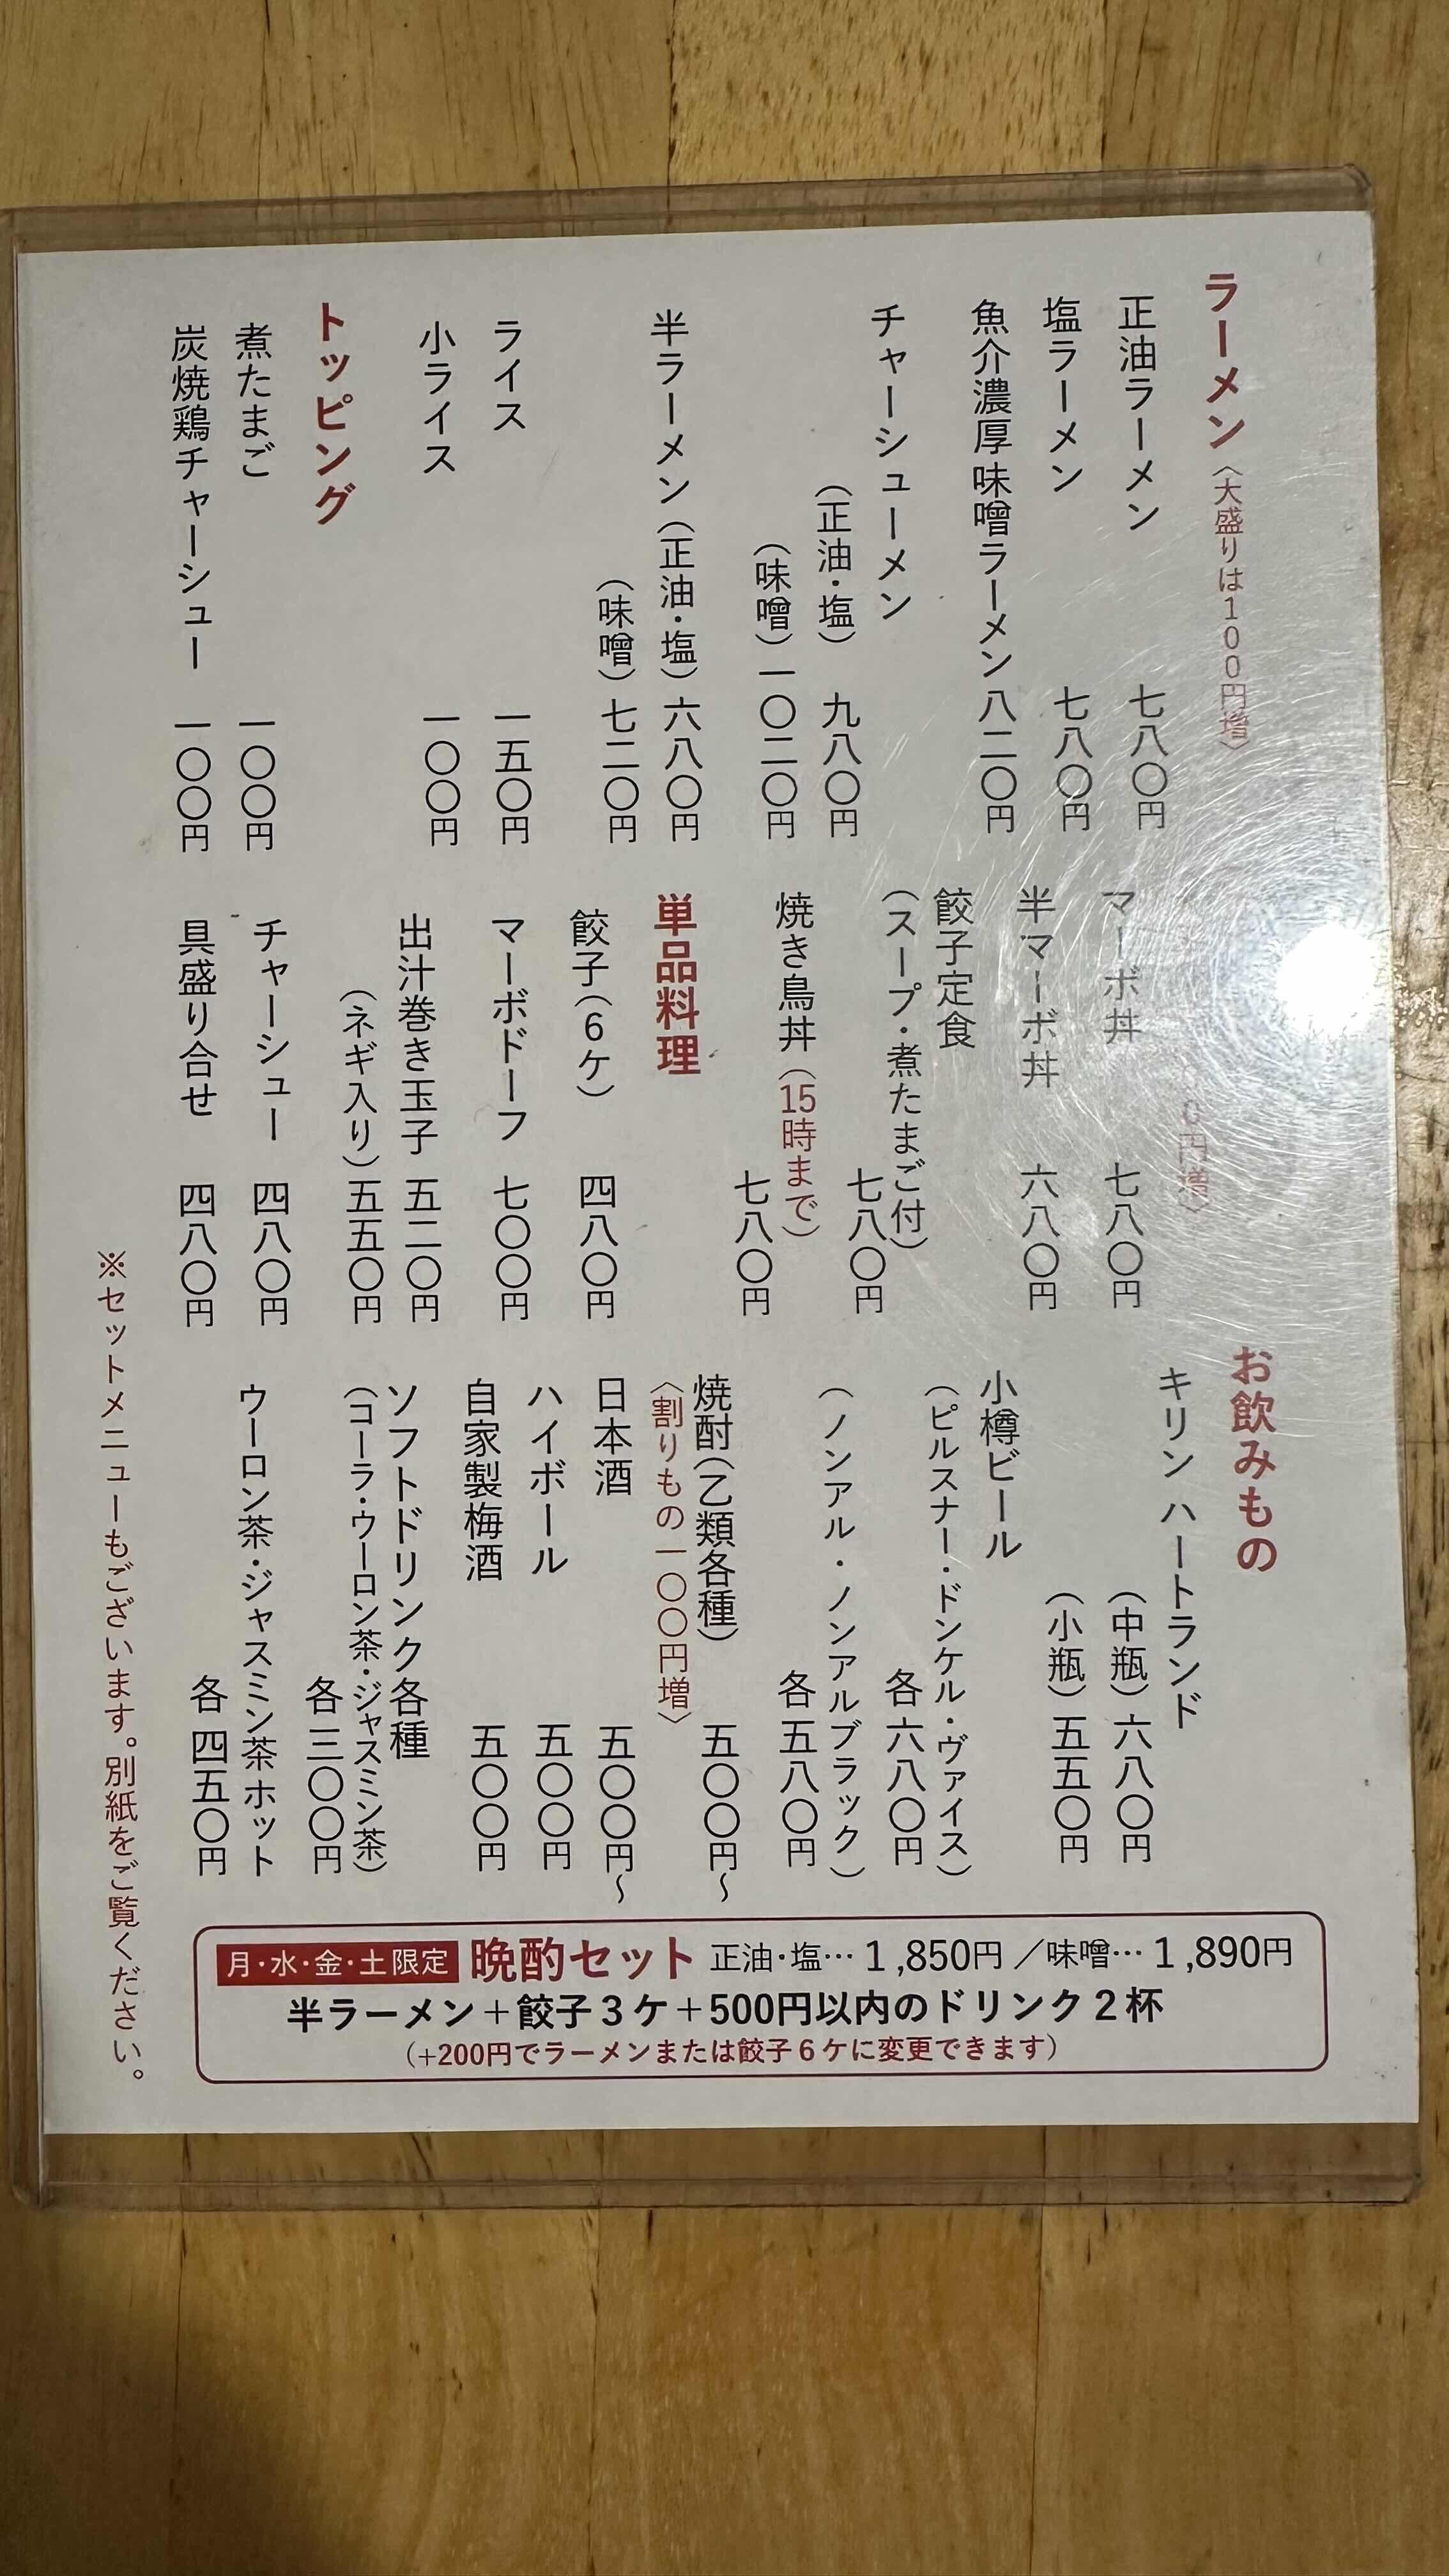 ラーメン〈大盛りは100円増〉
正油ラーメン 七八〇円
塩ラーメン 七八〇円
魚介濃厚味噌ラーメン 八二〇円
チャーシューメン
（正油・塩） 九八〇円
（味噌） 一〇二〇円
半ラーメン（正油・塩） 六八〇円
（味噌） 七二〇円
ライス 一五〇円
小ライス 一〇〇円
トッピング
煮たまご 一〇〇円
炭焼鶏チャーシュー 一〇〇円
0円増〉
マーボ丼 七八〇円
半マーボ丼 六八〇円
餃子定食
（スープ・煮たまご付） 七八〇円
焼き鳥丼（15時まで）
七八〇円
単品料理
餃子（6ケ） 四八〇円
マーボドーフ 七〇〇円
出汁巻き玉子 五二〇円
（ネギ入り） 五五〇円
チャーシュー 四八〇円
具盛り合せ 四八〇円
お飲みもの
キリン ハートランド
（中瓶） 六八〇円
（小瓶） 五五〇円
小樽ビール
（ピルスナー・ドンケル・ヴァイス）
各六八〇円
（ノンアル・ノンアルブラック）
各五八〇円
焼酎（乙類各種） 五〇〇円〜
〈割りもの一〇〇円増〉
日本酒 五〇〇円〜
ハイボール 五〇〇円
自家製梅酒 五〇〇円
ソフトドリンク各種
（コーラ・ウーロン茶・ジャスミン茶）
各三〇〇円
ウーロン茶・ジャスミン茶ホット
各四五〇円
※セットメニューもございます。別紙をご覧ください。
月・水・金・土限定 晩酌セット 正油・塩… 1,850円 ／味噌… 1,890円
半ラーメン＋餃子３ケ＋500円以内のドリンク２杯
（+200円でラーメンまたは餃子６ケに変更できます）